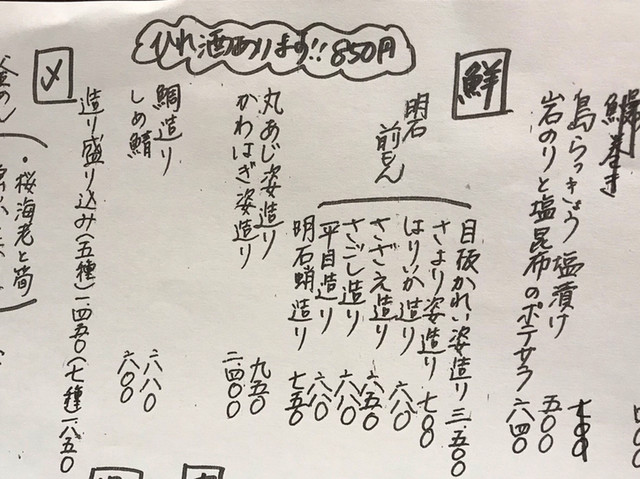 ひれ酒あります!! 850円
巻き
島らっきょう塩漬け 五〇〇
岩のりと塩昆布のポテサラ 六四〇
鮮
明石
前もん
目板かれい姿造り 三、五〇〇
さより姿造り 七〇〇
はりいか造り 六八〇
さざえ造り 六五〇
さごし造り 六八〇
平目造り 六八〇
明石蛸造り 七五〇
丸あじ姿造り 九五〇
かわはぎ姿造り 二、四〇〇
鯛造り 六八〇
しめ鯖 六〇〇
造り盛り込み(五種)一、四五〇(七種)一、八五〇
〆
釜めし
・桜海老と筍